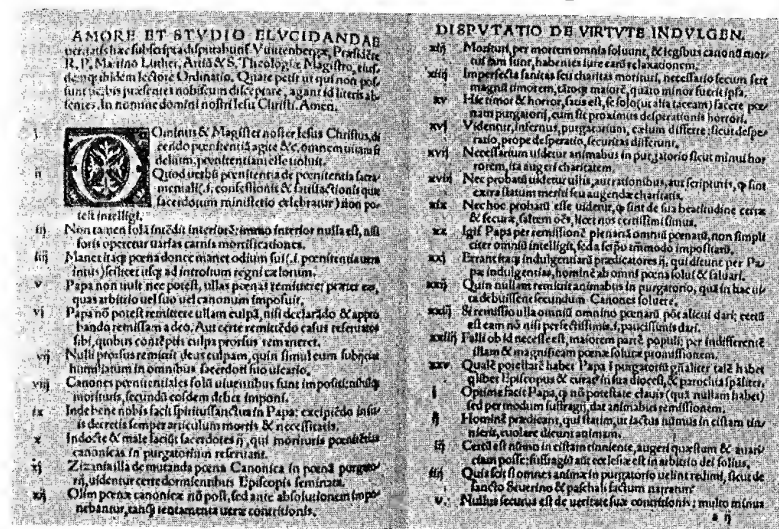 AMORE ET STVDIO ELVCIDANDAE
ueritatis hæc subscripta disputabunt Vuittenbergæ, Præsidẽte
R. P. Martino Luther, Artiũ & S. Theologiæ Magistro, eius-
demq; ibidem lectore Ordinario. Quare petit ut qui non pos-
sunt uerbis præsentes nobiscum disceptare, agant id literis ab-
sentes. In nomine domini nostri Iesu Christi. Amen.
i Dominus & Magister noster Iesus Christus, di
cendo pœnitentiã agite &c. omnem uitam fi
delium, pœnitentiam esse uoluit.
ij Quod uerbũ pœnitentiæ de pœnitentia sacra-
mentali (.i. confessionis & satisfactionis quæ
sacerdotum ministerio celebratur) non po-
test intelligi.
iij Non tamen solã intẽdit interiorẽ: immo interior nulla est, nisi
foris operetur uarias carnis mortificationes.
iiij Manet itaq; pœna donec manet odium sui (.i. pœnitentia uera
intus) scilicet usq; ad introitum regni cælorum.
v Papa non uult nec potest, ullas pœnas remittere: præter eas,
quas arbitrio uel suo uel canonum imposuit.
vi Papa nõ potest remittere ullam culpã, nisi declarãdo & appro
bando remissam a deo. Aut certe remittẽdo casus reseruatos
sibi, quibus contẽptis culpa prorsus remaneret.
vij Nulli prorsus remittit deus culpam, quin simul eum subijciat
humiliatum in omnibus sacerdoti suo uicario.
viij Canones pœnitentiales solũ uiuentibus sunt impositi: nihilq;
morituris, secundũ eosdem debet imponi.
ix Inde bene nobis facit spiritussanctus in Papa: excipiẽdo in su-
is decretis semper articulum mortis & necessitatis.
x Indocte & male faciũt sacerdotes ij, qui morituris pœnitẽtias
canonicas in purgatorium reseruant.
xj Zizania illa de mutanda pœna Canonica in pœnã purgato-
rij, uidentur certe dormientibus Episcopis seminata.
xij Olim pœnæ canonicæ nõ post, sed ante absolutionem impo-
nebantur, tanq̃ tentamenta ueræ contritionis.
DISPVTATIO DE VIRTVTE INDVLGEN.
xiij Morituri, per mortem omnia soluunt, & legibus canonũ mor-
tui iam sunt, habentes iure earũ relaxationem.
xiiij Imperfecta sanitas seu charitas morituri, necessario secum fert
magnũ timorem, tãtoq; maiorẽ, quãto minor fuerit ipsa.
xv Hic timor & horror, satis est, se solo (ut alia taceam) facere pœ-
nam purgatorij, cum sit proximus desperationis horrori.
xvj Videntur, infernus, purgatorium, cælum differre: sicut despe-
ratio, prope desperatio, securitas differunt.
xvij Necessarium uidetur animabus in purgatorio sicut minui hor-
rorem, ita augeri charitatem.
xviij Nec probatũ uidetur ullis, aut rationibus, aut scripturis, q̃ sint
extra statum meriti seu augendæ charitatis.
xix Nec hoc probatũ esse uidetur, q̃ sint de sua beatitudine certæ
& securæ, saltem oẽs, licet nos certissimi simus.
xx Igit̃ Papa per remissionẽ plenariã omniũ pœnarũ, non simpli
citer omniũ intelligit, sed a seipso tmmodo impositarũ.
xxj Errant itaq; indulgentiarũ prædicatores ij, qui dicunt per Pa-
pæ indulgentias, hominẽ ab omni pœna solui & saluari.
xxij Quin nullam remittit animabus in purgatorio, quã in hac ui-
ta debuissent secundum Canones soluere.
xxiij Si remissio ulla omniũ omnino pœnarũ põt alicui dari; certũ
est eam nõ nisi perfectissimis .i. paucissimis dari.
xxiiij Falli ob id necesse est, maiorem partẽ populi: per indifferentẽ
illam & magnificam pœnæ solutæ promissionem.
xxv Qualẽ potestatẽ habet Papa ĩ purgatoriũ gñaliter talẽ habet
q̃libet Episcopus & curat⁹ in sua diocesi, & parochia sp̃aliter.
j Optime facit Papa, q̃ nõ potestate clauis (quã nullam habet)
sed per modum suffragij, dat animabus remissionem.
ij Hominẽ prædicant, qui statim, ut iactus nũmus in cistam tin-
nierit, euolare dicunt animam.
iij Certũ est nũmo in cistam tinniente, augeri quæstum & auari-
ciam posse: suffragiũ aũt ecclesiæ est in arbitrio dei solius.
iiij Quis scit si omnes animæ in purgatorio uelint redimi, sicut de
sancto Seuerino & paschali factum narratur.
v. Nullus securus est de ueritate suæ contritionis; multo minus
a ij